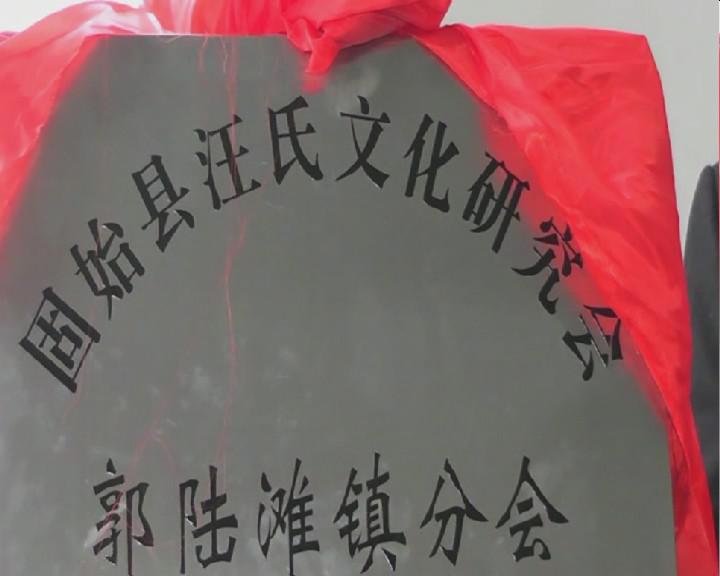 固始县汪氏文化研究会
郭陆滩镇分会